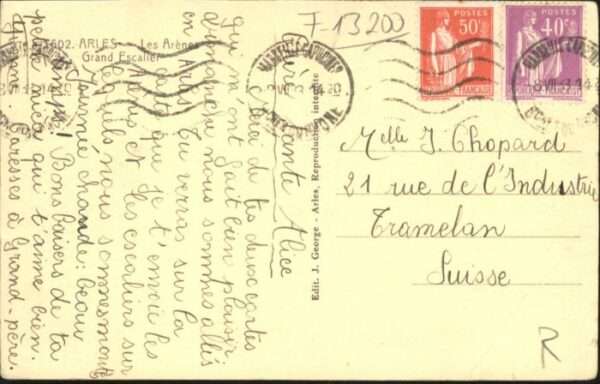 F-13200
3602. ARLES - Les Arènes
Grand Escalier
Chère tante Alice
Merci de tes deux cartes
qui m'ont fait bien plaisir.
Dimanche nous sommes allés
en Arles. Tu verras sur la
carte que je t'envoie les
Arènes et les escaliers sur
lesquels nous sommes montés
Journée chaude: beau
temps! Bons baisers de ta
petite nièce qui t'aime bien.
Caresses à Grand-père.
Edit. J. George - Arles. Reproduction interdite
POSTES
50c
REPUBLIQUE FRANÇAISE
POSTES
40c
REPUBLIQUE FRANÇAISE
Melle J. Chopard
21 rue de l'Industrie
Tramelan
Suisse
R